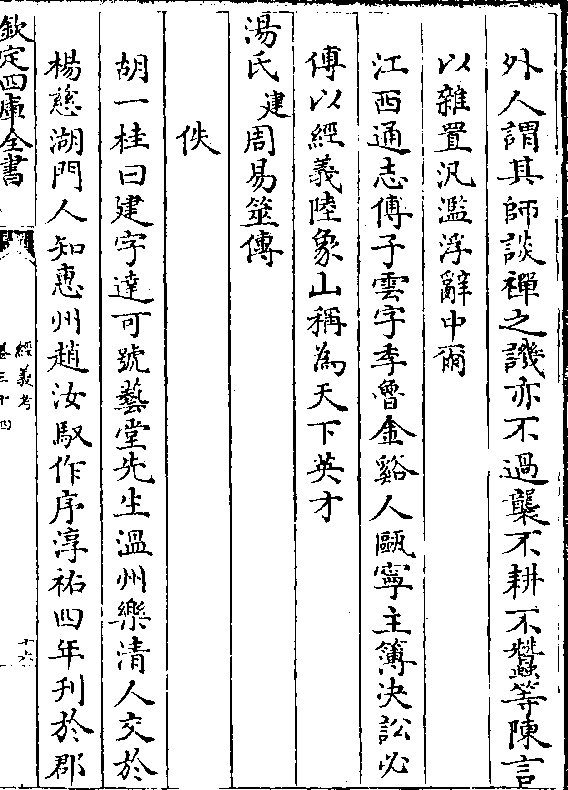 外人謂其師談禪之譏亦不過襲不耕不蠶等陳言
以雜置汎濫浮辭中爾
江西通志傅子雲字季魯金谿人甌寧主簿決訟必
傅以經義陸象山稱為天下英才
湯氏建周易筮傳
佚
胡一桂曰建字達可號藝堂先生溫州樂清人交於
楊慈湖門人知惠州趙汝馭作序淳祐四年刊於郡
欽定四庫全書
經義考
卷三十四
十六